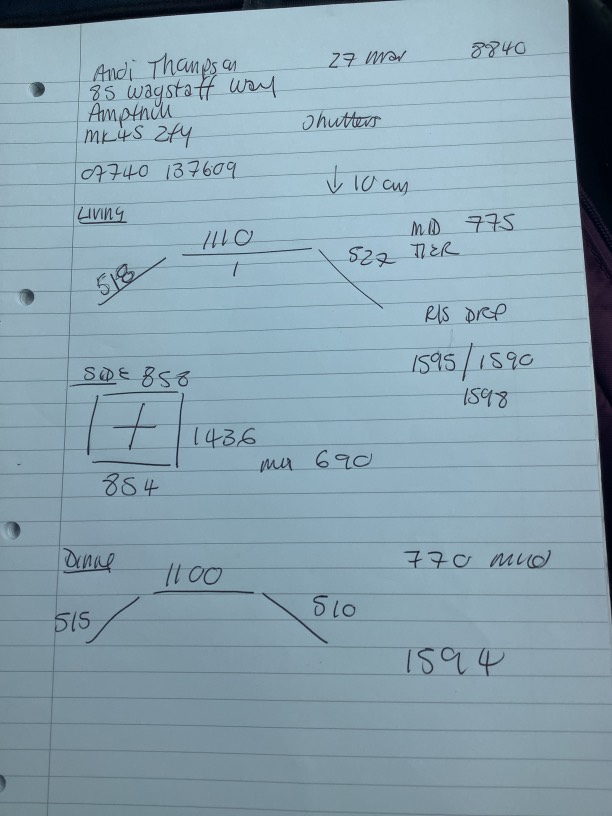 Andi Thompson 27 mar 8840
85 wagstaff way
Ampthill
MK45 2FY shutters
07740 137609
↓ 10 cm
Living
1110 MID 775
518 1 527 TIER
R/S DROP
1595/1590
1598
SIDE 858
1436
690
854
770 mid
1100
515 510
1594